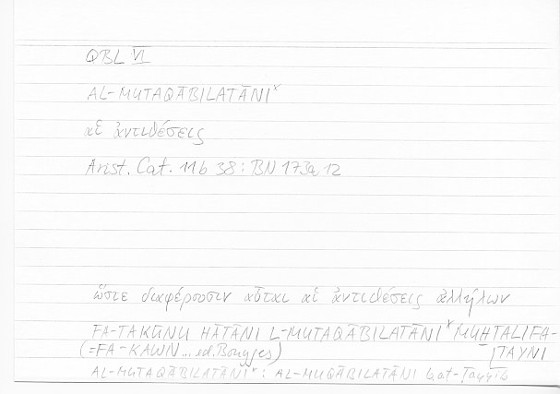 QBL VI
AL-MUTAQĀBILATĀNI*
αἱ ἀντιθέσεις
Arist. Cat. 11b 38: BN 173a 12
ὥστε διαφέρουσιν αὗται αἱ ἀντιθέσεις ἀλλήλων
FA-TAKŪNU HĀTĀNI L-MUTAQĀBILATĀNI* MUḪTALIFA-
(=FA-KAWN... ed. Bouyges) TAYNI
AL-MUTAQĀBILATĀNI*: AL-MUQĀBILATĀNI b.at-Ṭayyib